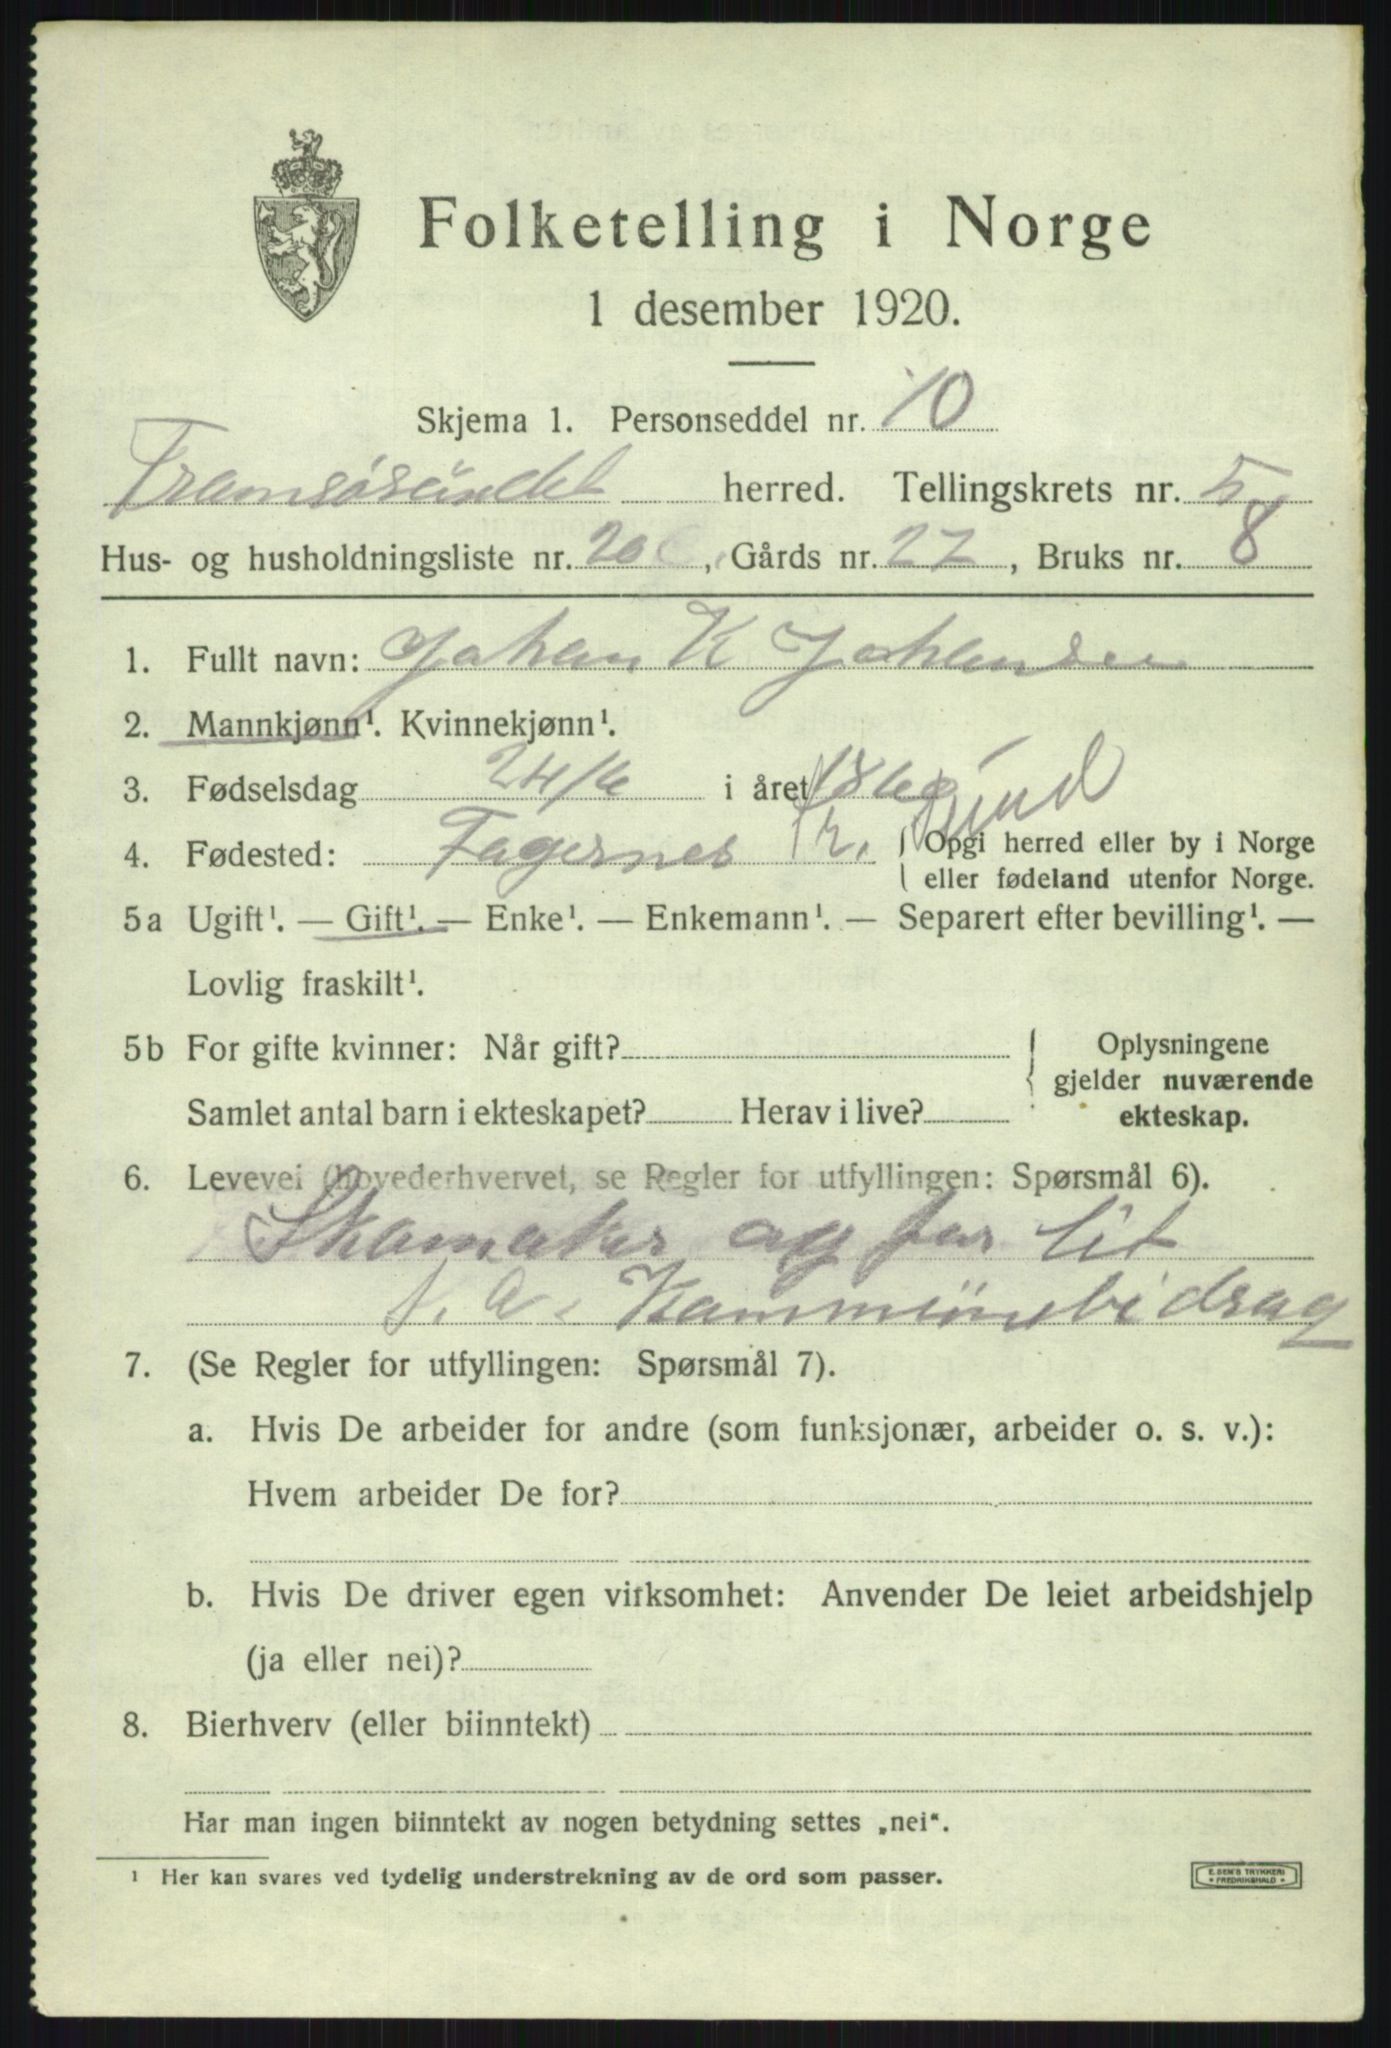 Folketelling i Norge
1 desember 1920.
Skjema 1. Personseddel nr. 10
Tromsøsundet herred. Tellingskrets nr. 5
Hus- og husholdningsliste nr. 20, Gårds nr. 27, Bruks nr. 8
1. Fullt navn: Johan K Johansen
2. Mannkjønn¹. Kvinnekjønn¹.
3. Fødselsdag 24/6 i året 1860
4. Fødested: Fagernes Tr. sund { Opgi herred eller by i Norge
eller fødeland utenfor Norge.
5a Ugift¹. — Gift¹. — Enke¹. — Enkemann¹. — Separert efter bevilling¹. —
Lovlig fraskilt¹.
5b For gifte kvinner: Når gift? { Oplysningene
gjelder nuværende
Samlet antal barn i ekteskapet? Herav i live? ekteskap.
6. Levevei (hovederhvervet, se Regler for utfyllingen: Spørsmål 6).
Skomaker og for lit
Kommünebidrag
7. (Se Regler for utfyllingen: Spørsmål 7).
a. Hvis De arbeider for andre (som funksjonær, arbeider o. s. v.):
Hvem arbeider De for?
b. Hvis De driver egen virksomhet: Anvender De leiet arbeidshjelp
(ja eller nei)?
8. Bierhverv (eller biinntekt)
Har man ingen biinntekt av nogen betydning settes „nei“.
¹ Her kan svares ved tydelig understrekning av de ord som passer.
E. SEM'S TRYKKERI
* FREDRIKSHALD *